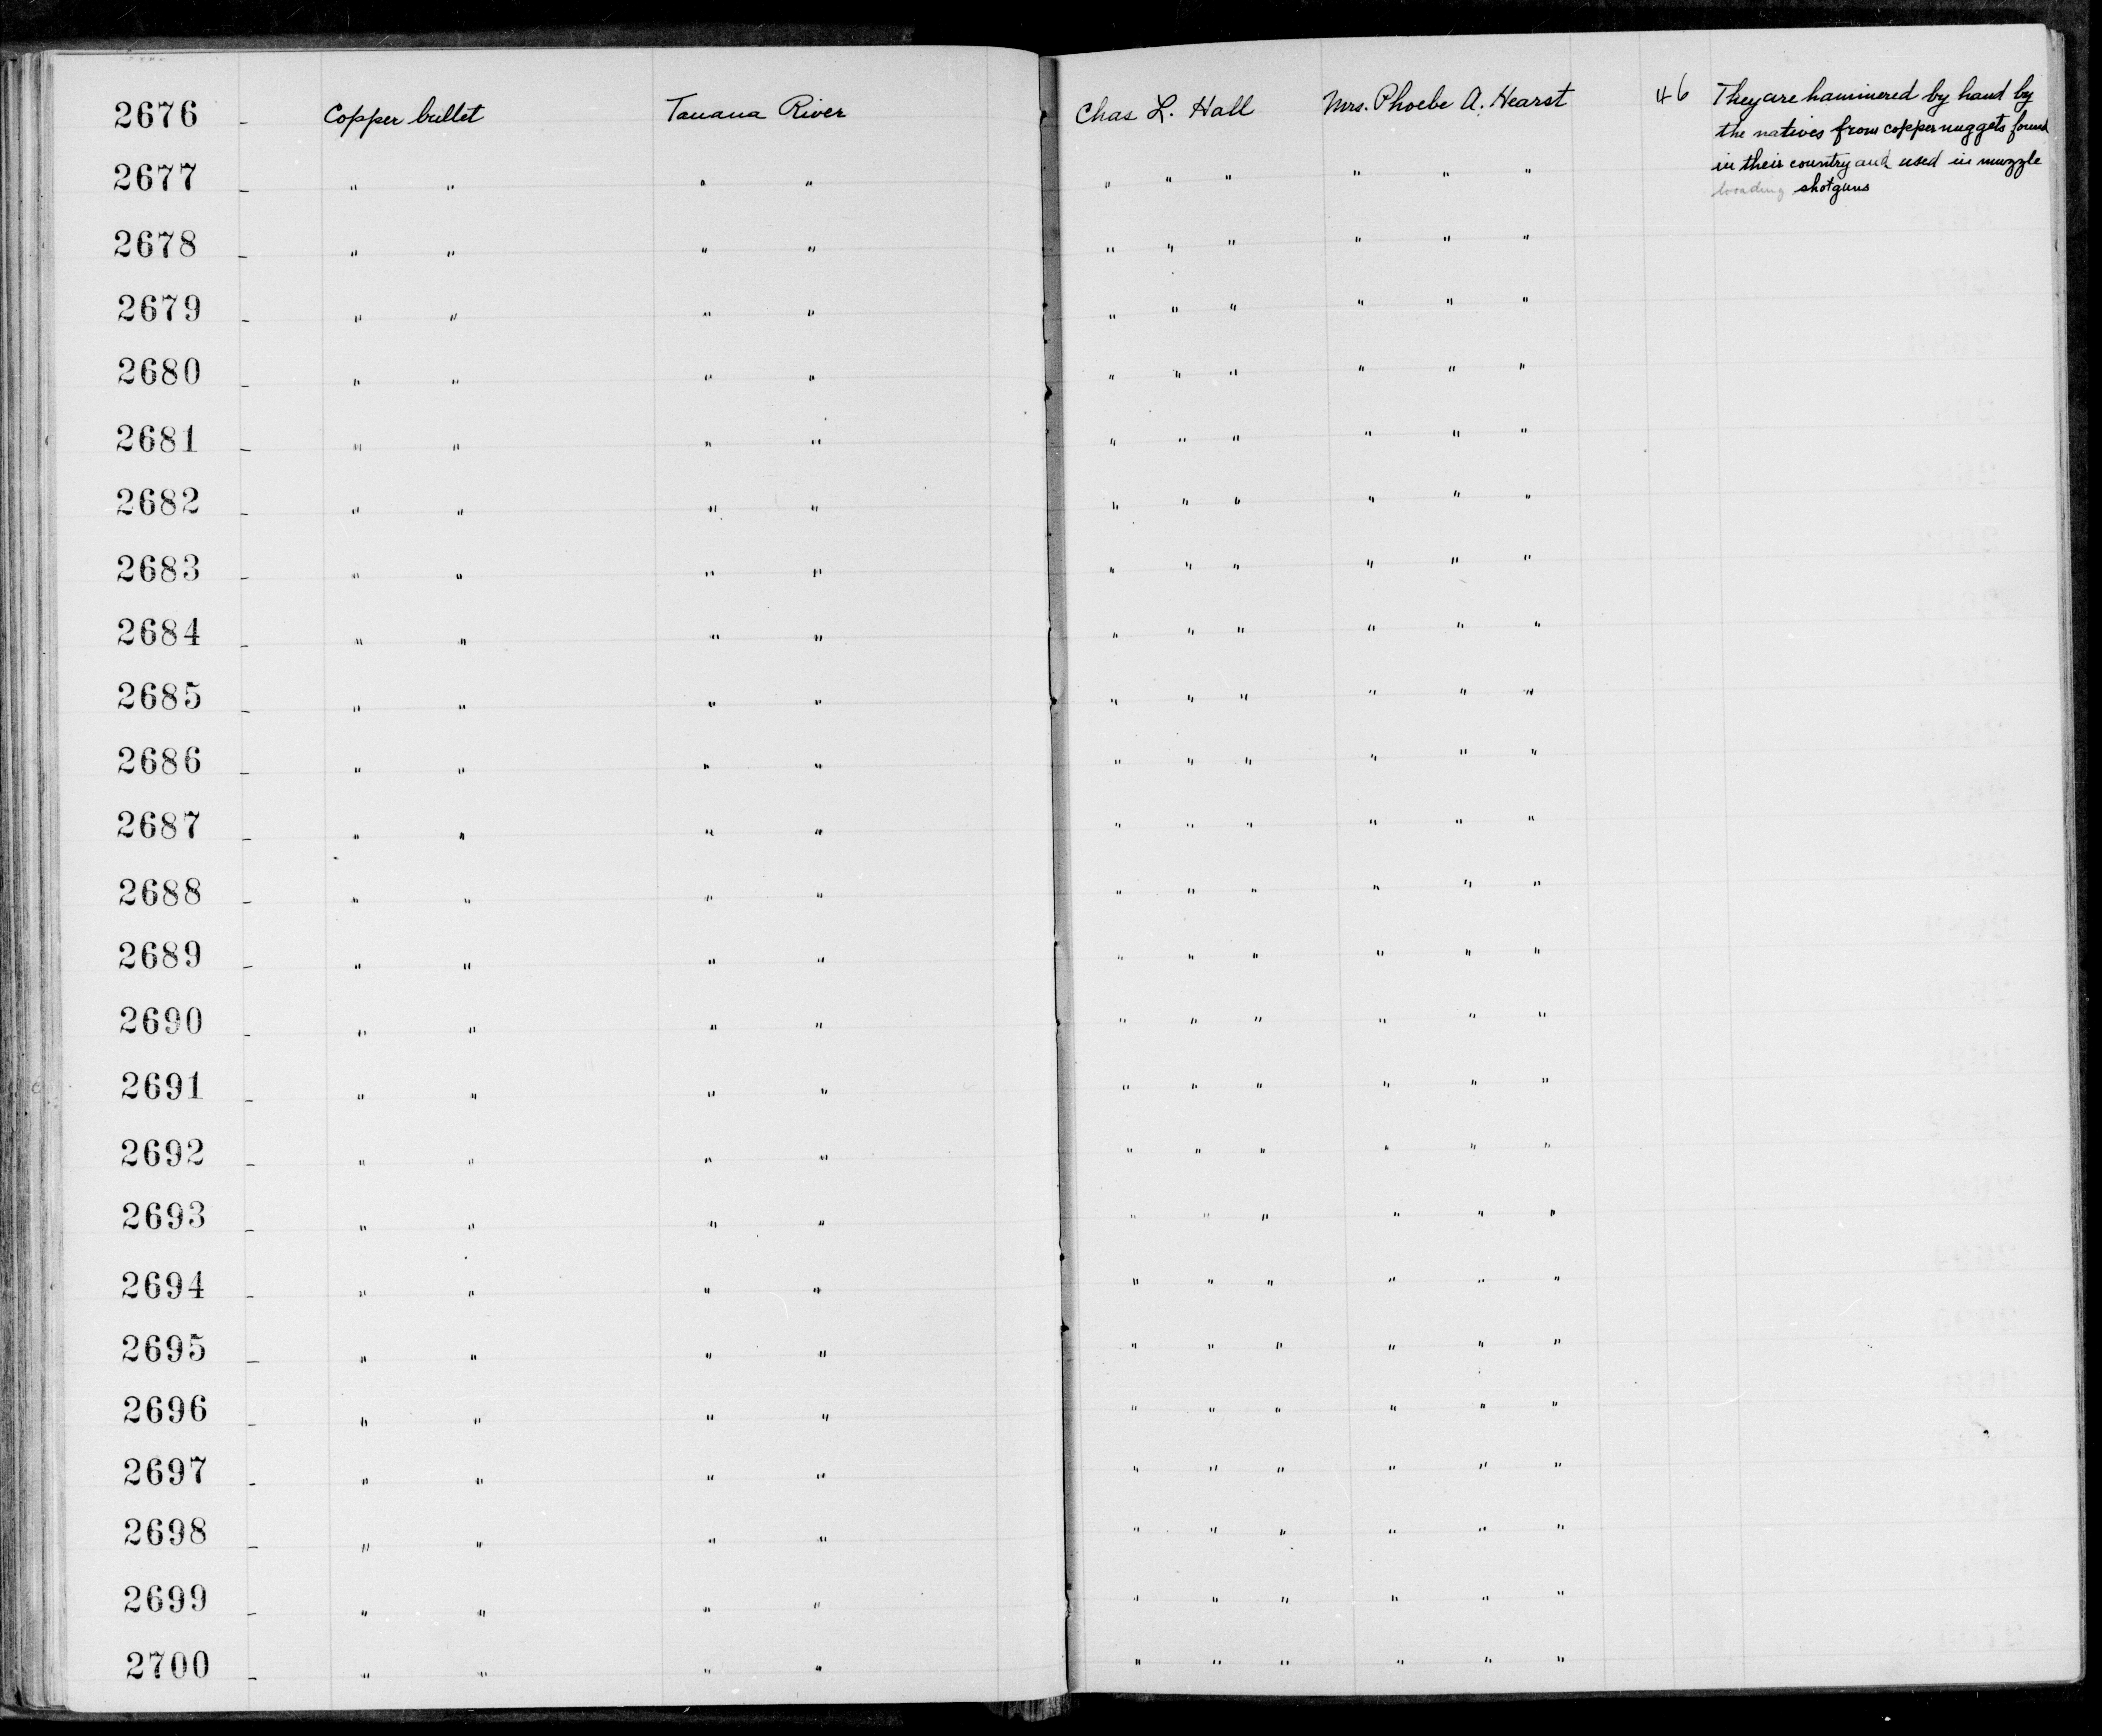 2676 - Copper bullet Tanana River Chas L. Hall Mrs. Phoebe A. Hearst 46 They are hammered by hand by
the natives from copper nuggets found
in their country and used in muzzle
loading shotguns
2677 - " " " " " " " " " "
2678 - " " " " " " " " " "
2679 - " " " " " " " " " "
2680 - " " " " " " " " " "
2681 - " " " " " " " " " "
2682 - " " " " " " " " " "
2683 - " " " " " " " " " "
2684 - " " " " " " " " " "
2685 - " " " " " " " " " "
2686 - " " " " " " " " " "
2687 - " " " " " " " " " "
2688 - " " " " " " " " " "
2689 - " " " " " " " " " "
2690 - " " " " " " " " " "
2691 - " " " " " " " " " "
2692 - " " " " " " " " " "
2693 - " " " " " " " " " "
2694 - " " " " " " " " " "
2695 - " " " " " " " " " "
2696 - " " " " " " " " " "
2697 - " " " " " " " " " "
2698 - " " " " " " " " " "
2699 - " " " " " " " " " "
2700 - " " " " " " " " " "